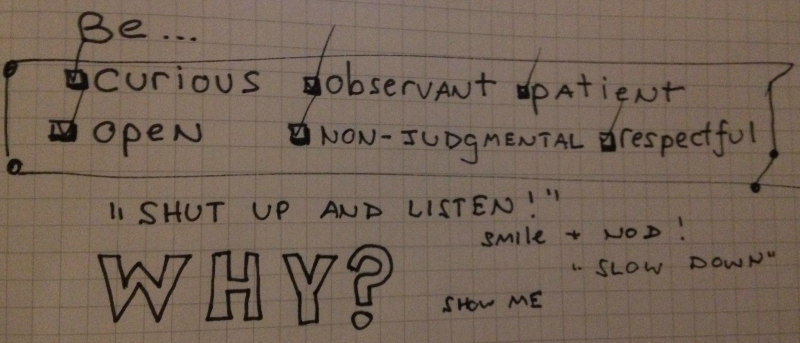 Be...
curious observant patient
open NON-JUDGMENTAL respectful
"SHUT UP AND LISTEN!"
smile + NOD!
"SLOW DOWN"
WHY?
SHOW ME